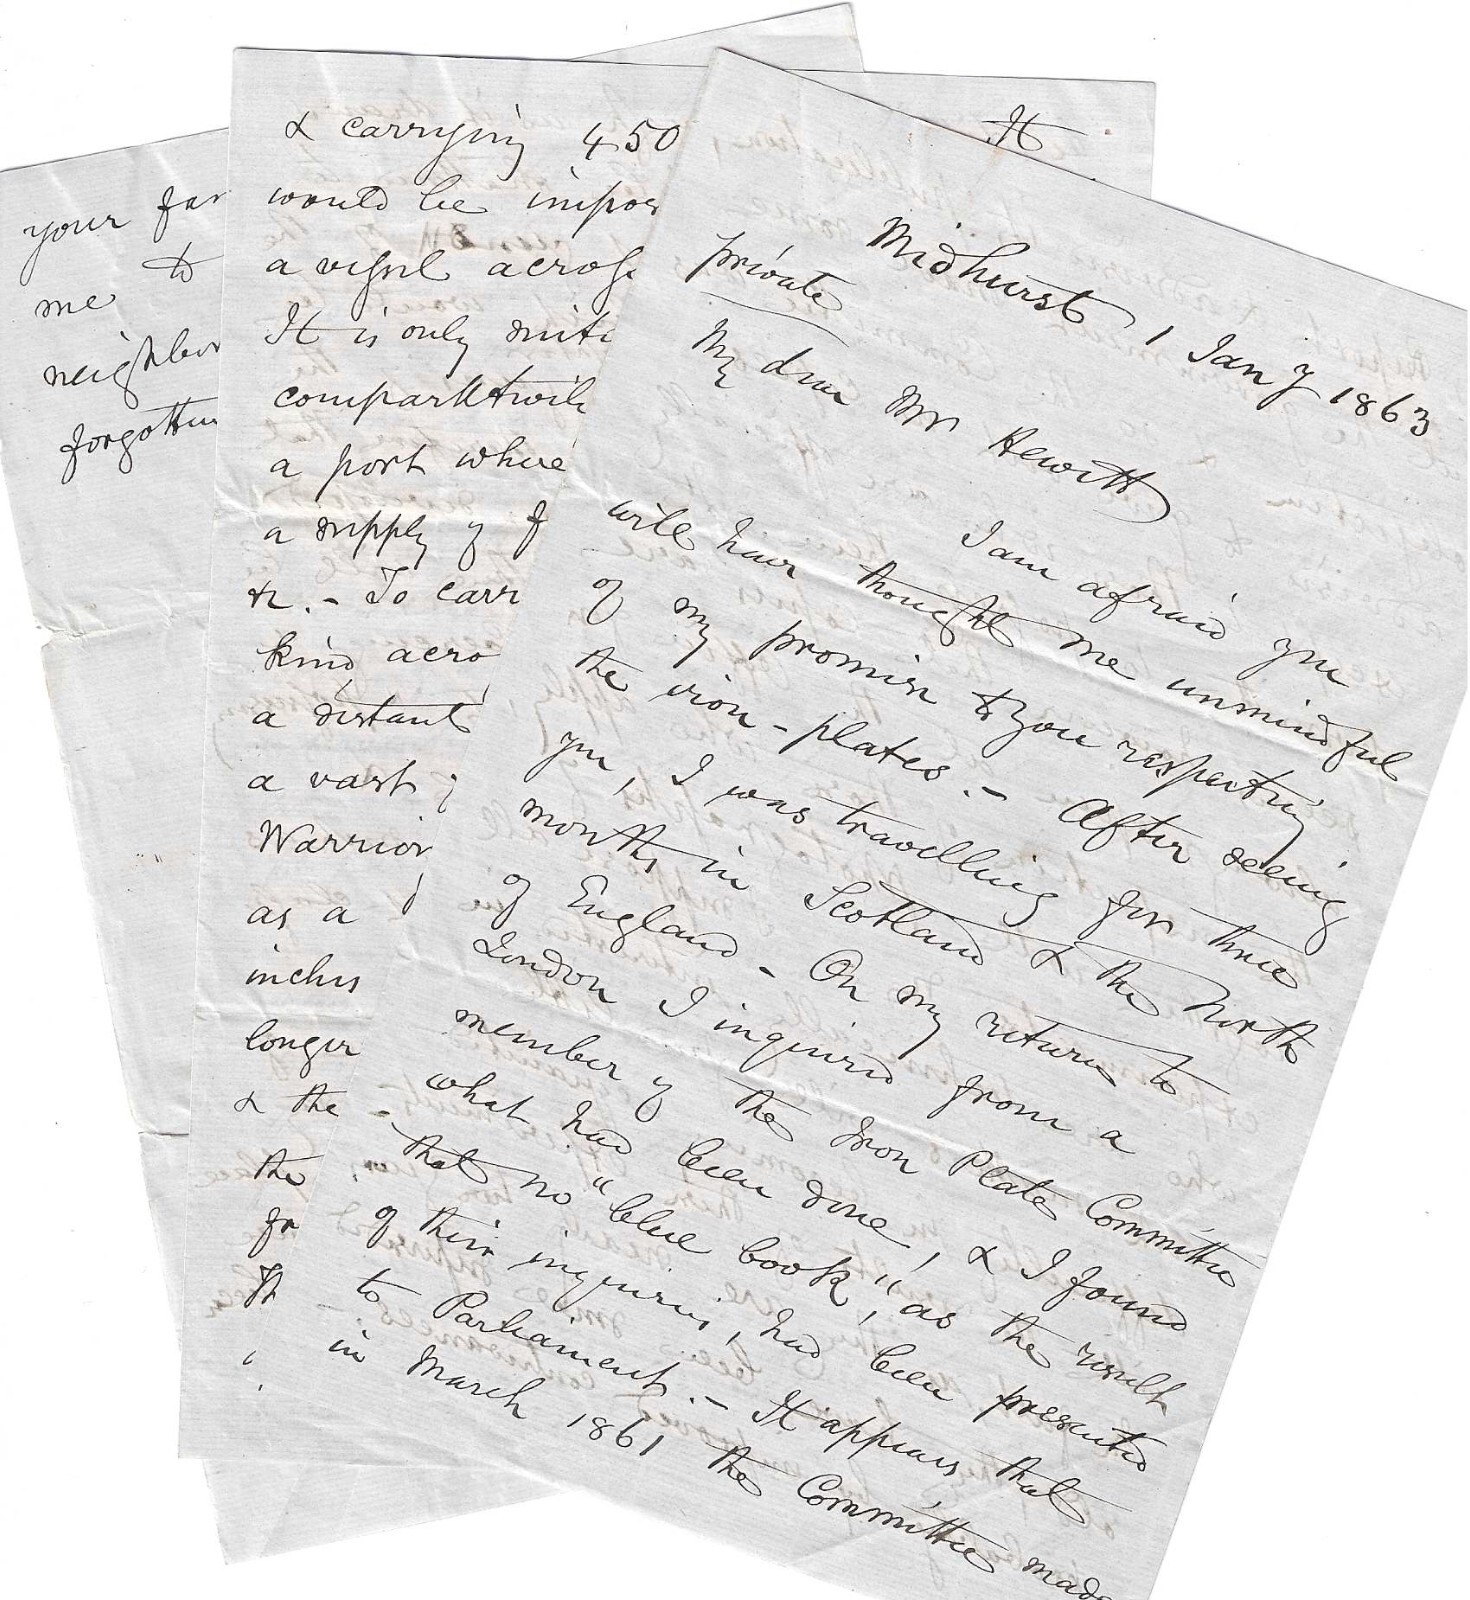 Midhurst, 1 Jany 1863
private
My dear Mr Hewitt
I am afraid you
will have thought me unmindful
of my promise to you respecting
the iron-plates. - After seeing
you, I was travelling for three
months in Scotland & the North
of England - On my return to
London I inquired from a
member of the Iron Plate Committee
what had been done, & I found
- that no "blue book," as the result
of their inquiries, had been presented
to Parliament. - It appears that
in March 1861 the Committee made
& carrying 450
would be impos
a vessel across
It is only
a port where
a supply of f
&c. - To carr
kind, acro
a distant
a vast
Warrior
as a
inches
longer
& the
the
for
Th
It
your far
me to
neighbor
forgotten